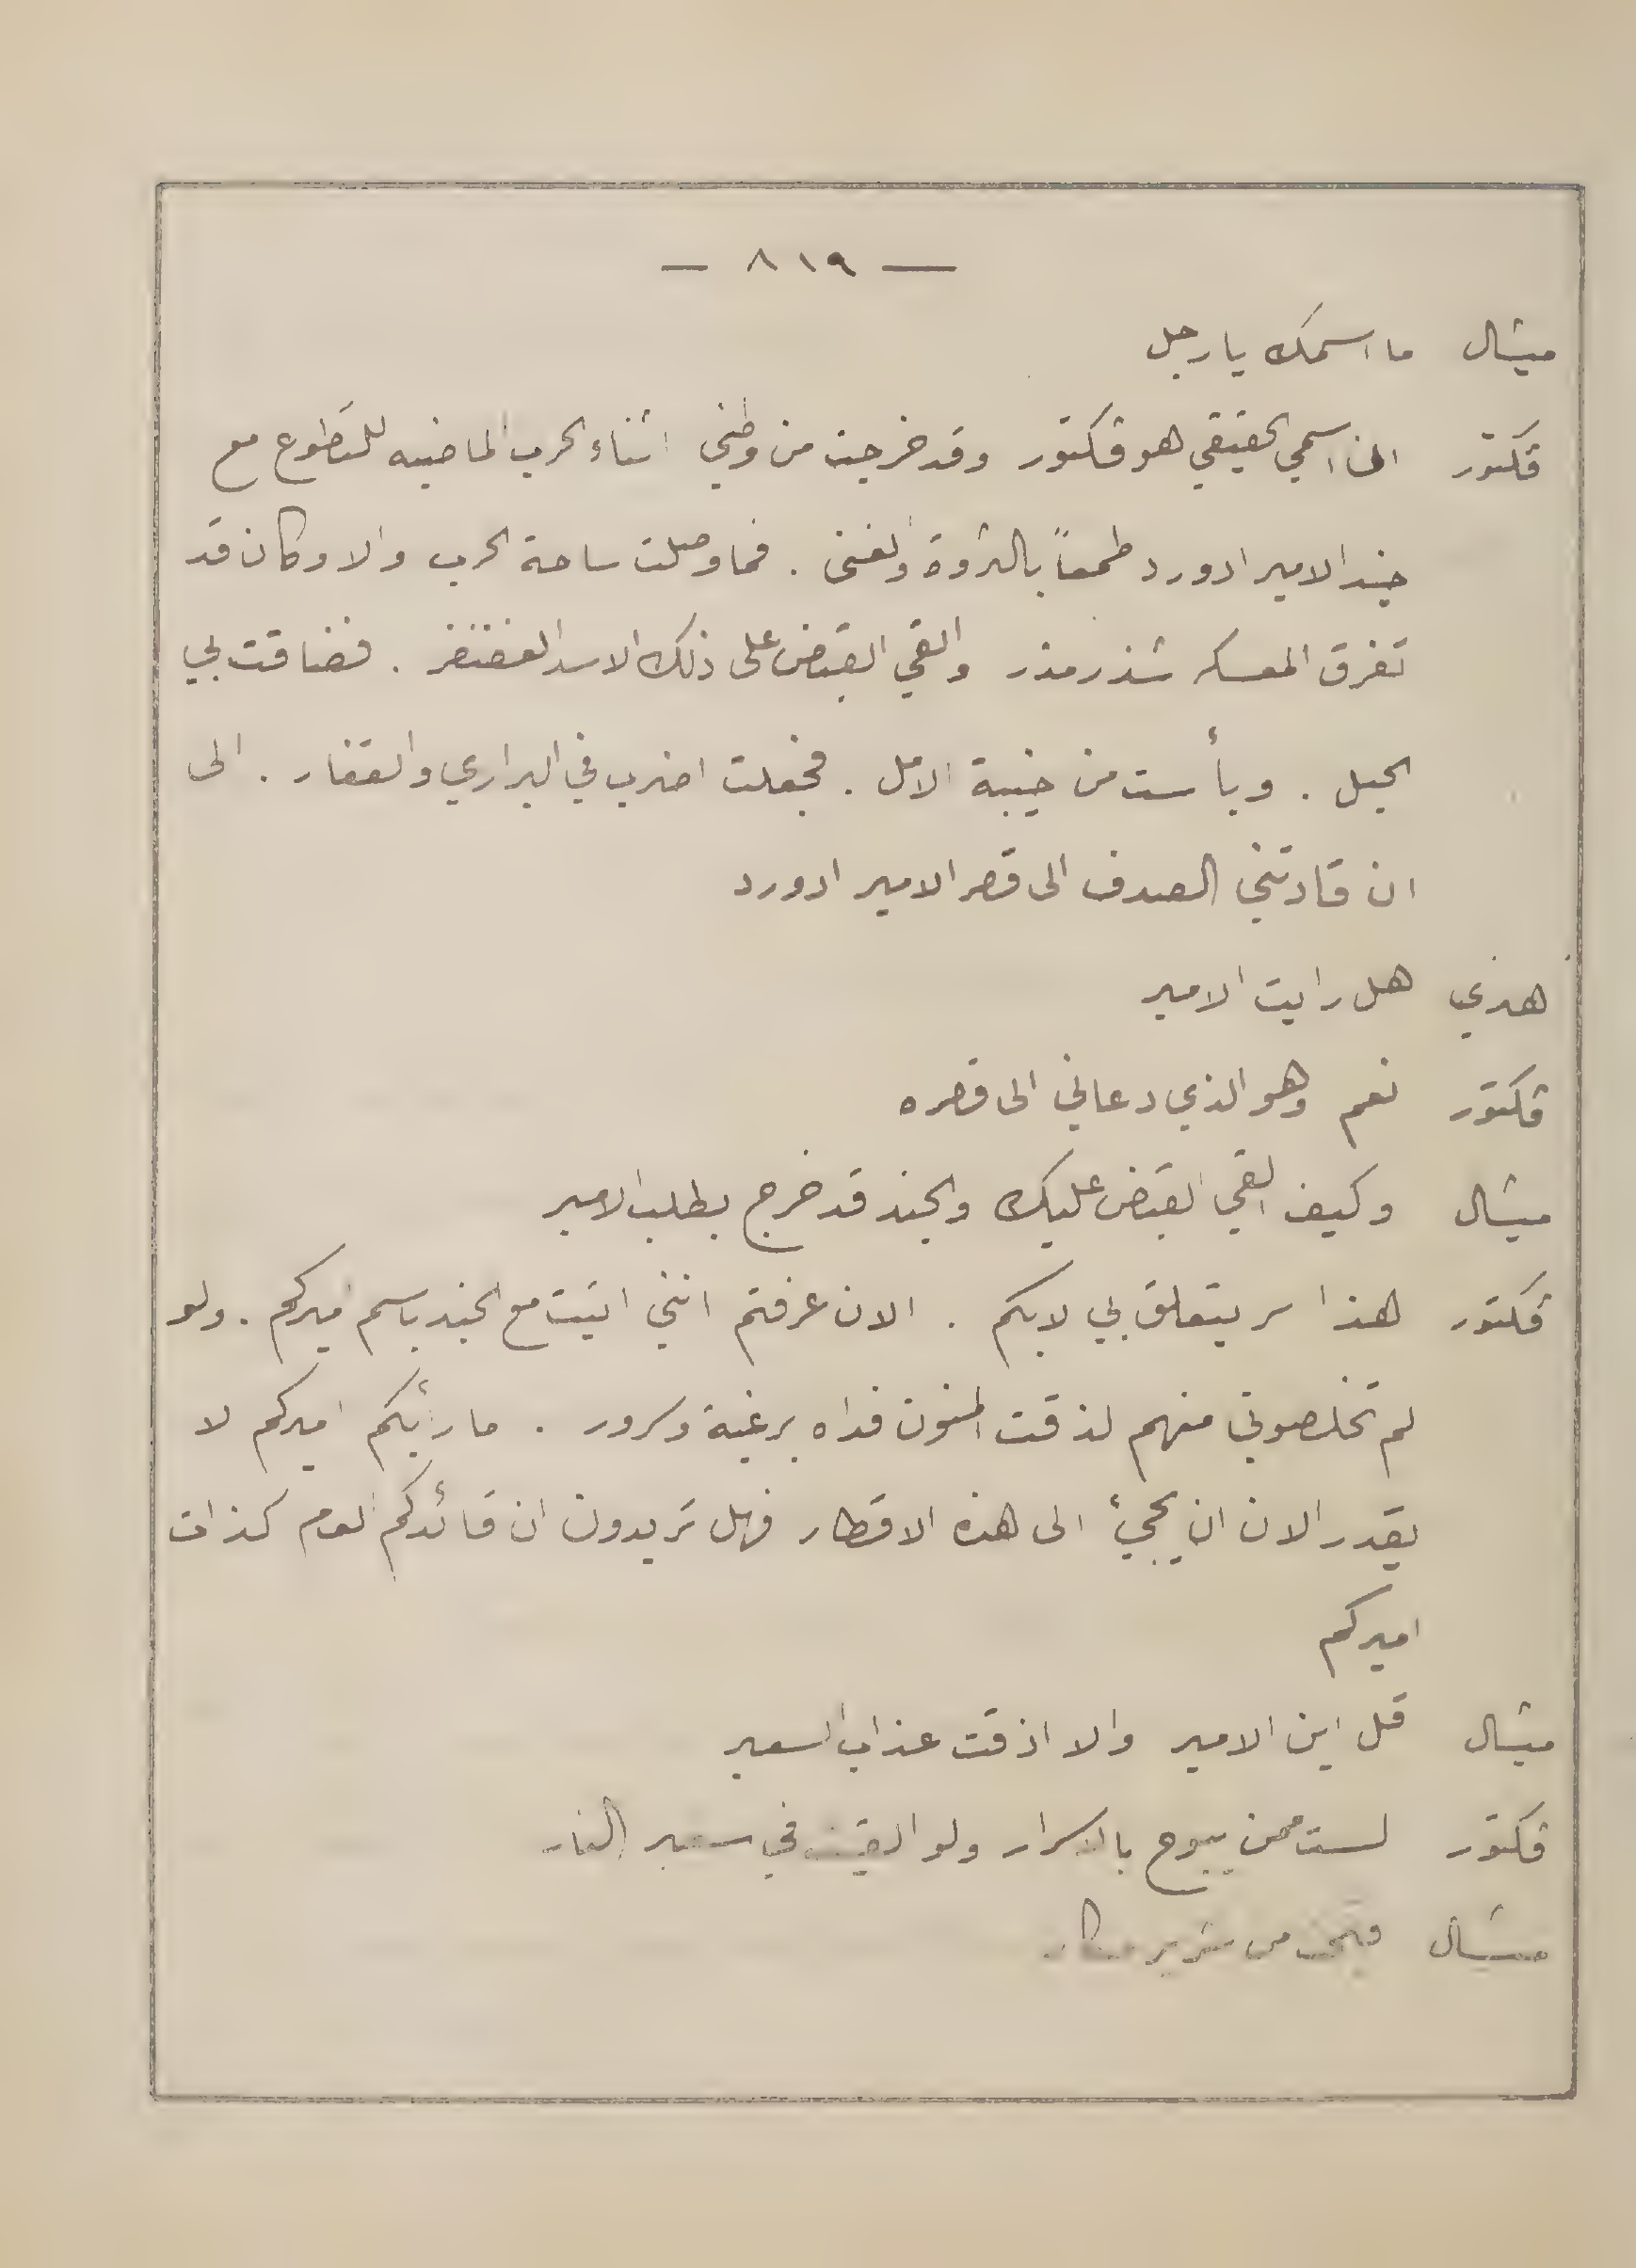 — ٨١٩ —
ميشال ما اسمك يا رجل
فكتور ان اسمي الحقيقي هو فكتور وقد خرجت من وطني اثناء الحرب الماضيه للتطوع مع
جند الامير ادورد طمعاً بالثروة والغنى . فما وصلت ساحة الحرب والا وكان قد
تفرق المعسكر شذر مذر والقي القبض على ذلك الاسد الغضنفر . فضاقت بي
الحيل . ويأست من خيبة الامل . فجعلت اضرب في البراري والقفار . الى
ان قادتني الصدف الى قصر الامير ادورد
هنري هل رايت الامير
فكتور نعم وهو الذي دعاني الى قصره
ميشال وكيف القي القبض عليك والجند قد خرج بطلب الامير
فكتور هذا سر يتعلق بي لا بكم . الان عرفتم انني اتيت مع الجند باسم اميركم . ولو
لم تخلصوني منهم لذقت المنون فداه برغبة وسرور . ما رأيكم اميركم لا
يقدر الان ان يجيء الى هذه الاقطار فهل تريدون ان قائدكم لعدم كذات
اميركم
ميشال قل اين الامير والا اذقت عذاب السعير
فكتور لست ممن يبوح بالاسرار ولو القيت في سعير النار
ميشال من شرير مكار